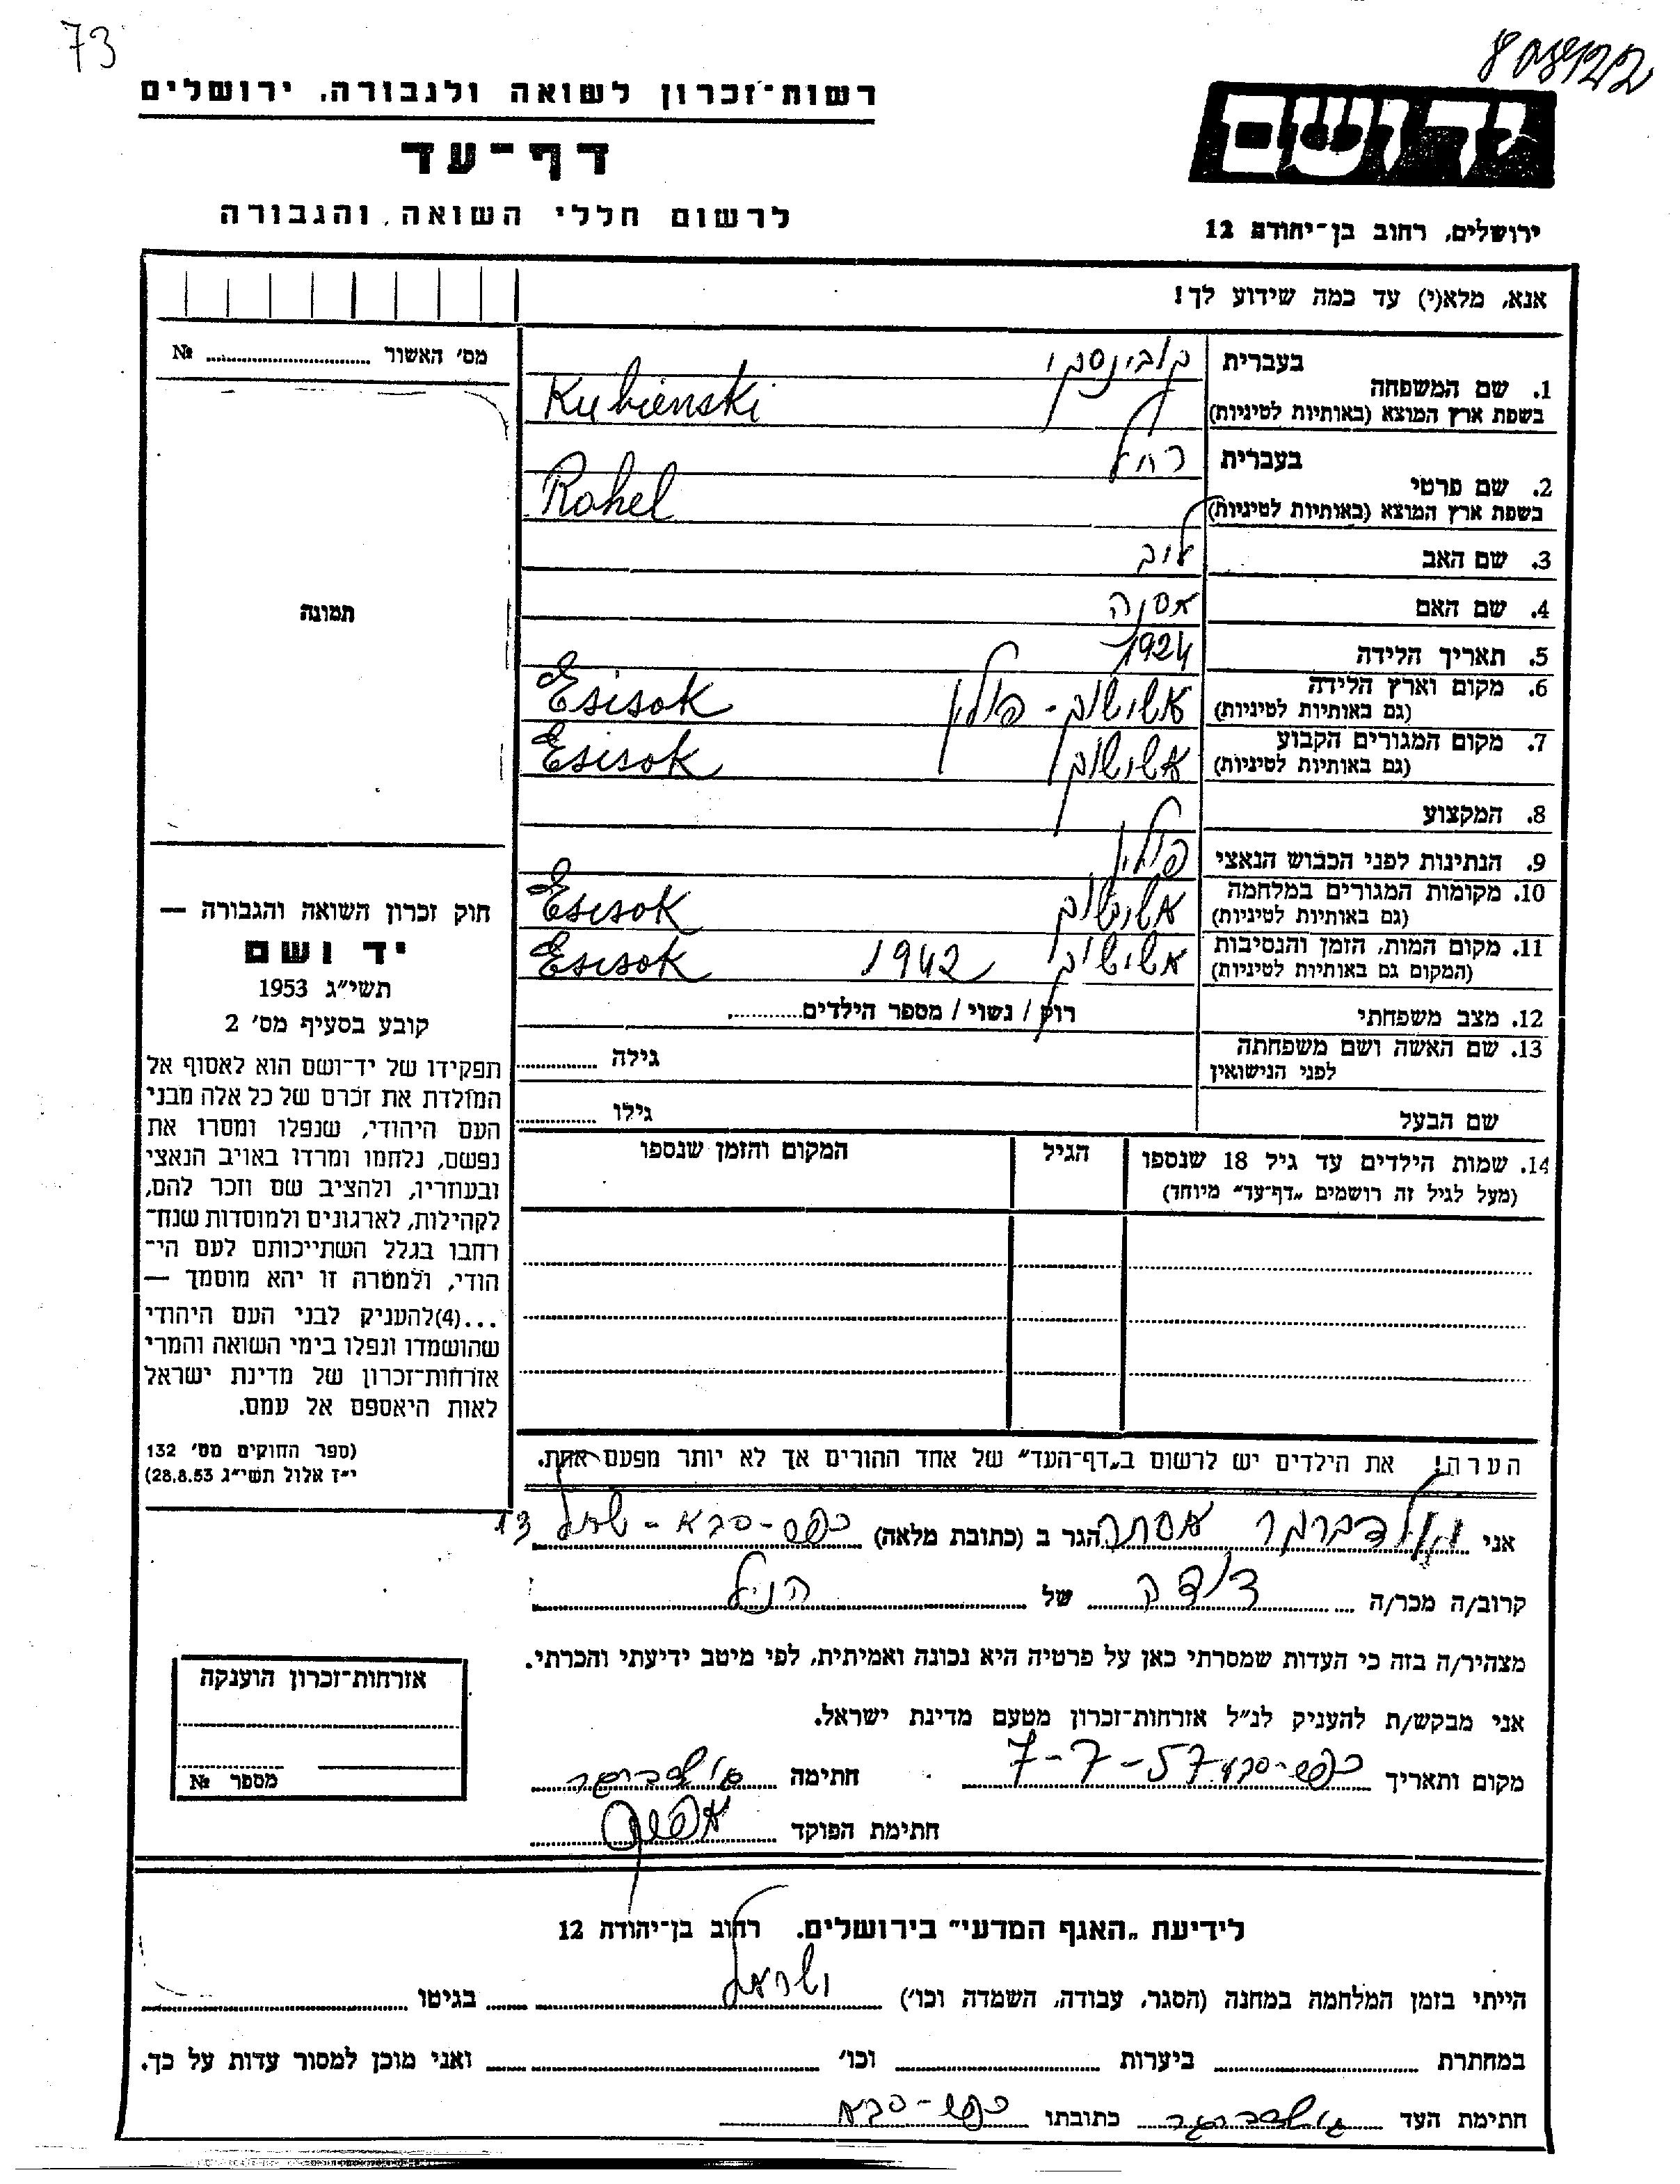 73
808122
רשות־זכרון לשואה ולגבורה, ירושלים
דף־עד
לרשום חללי השואה והגבורה
ידושם
ירושלים, רחוב בן־יהודה 12
אנא, מלא(י) עד כמה שידוע לך!
מס' האשור № 
תמונה
חוק זכרון השואה והגבורה —
יד ושם
תשי״ג 1953
קובע בסעיף מס' 2
תפקידו של יד־ושם הוא לאסוף אל
המולדת את זכרם של כל אלה מבני
העם היהודי, שנפלו ומסרו את
נפשם, נלחמו ומרדו באויב הנאצי
ובעוזריו, ולהציב שם וזכר להם,
לקהילות, לארגונים ולמוסדות שנח־
רחבו בגלל השתייכותם לעם הי־
הודי, ולמטרה זו יהא מוסמך —
...(4)להעניק לבני העם היהודי
שהושמדו ונפלו בימי השואה והמרי
אזרחות־זכרון של מדינת ישראל
לאות היאספם אל עמם.
(ספר החוקים מס' 132
י״ז אלול תשי״ג 28.8.53)
בעברית קובינסקי
1. שם המשפחה
בשפת ארץ המוצא (באותיות לטיניות) Kubienski
בעברית רחל
2. שם פרטי
בשפת ארץ המוצא (באותיות לטיניות) Rahel
3. שם האב לוב
4. שם האם אסנה
5. תאריך הלידה 1924
6. מקום וארץ הלידה אשישוק - פולין Esisok
(גם באותיות לטיניות)
7. מקום המגורים הקבוע אשישוק Esisok
(גם באותיות לטיניות)
8. המקצוע
9. הנתינות לפני הכבוש הנאצי פולין
10. מקומות המגורים במלחמה אשישוק Esisok
(גם באותיות לטיניות)
11. מקום המות, הזמן והנסיבות אשישוק 1942 Esisok
(המקום גם באותיות לטיניות)
12. מצב משפחתי רוק / נשוי / מספר הילדים
13. שם האשה ושם משפחתה גילה
לפני הנישואין
שם הבעל גילו
14. שמות הילדים עד גיל 18 שנספו הגיל המקום והזמן שנספו
(מעל לגיל זה רושמים „דף־עד״ מיוחד)
הערה! את הילדים יש לרשום ב„דף־העד״ של אחד ההורים אך לא יותר מפעם אחת.
אני גולדברגר אסתר הגר ב (כתובת מלאה) כפר-סבא
קרוב/ה מכר/ה דודה של הנ״ל
מצהיר/ה בזה כי העדות שמסרתי כאן על פרטיה היא נכונה ואמיתית, לפי מיטב ידיעתי והכרתי.
אני מבקש/ת להעניק לנ״ל אזרחות־זכרון מטעם מדינת ישראל.
מקום ותאריך כפר-סבא 7-7-57 חתימה גולדברגר
חתימת הפוקד
אזרחות־זכרון הוענקה
מספר №
לידיעת „האגף המדעי״ בירושלים. רחוב בן־יהודה 12
הייתי בזמן המלחמה במחנה (הסגר, עבודה, השמדה וכו') ישראל בגיטו
במחתרת ביערות וכו' ואני מוכן למסור עדות על כך.
חתימת העד גולדברגר כתובתו כפר-סבא